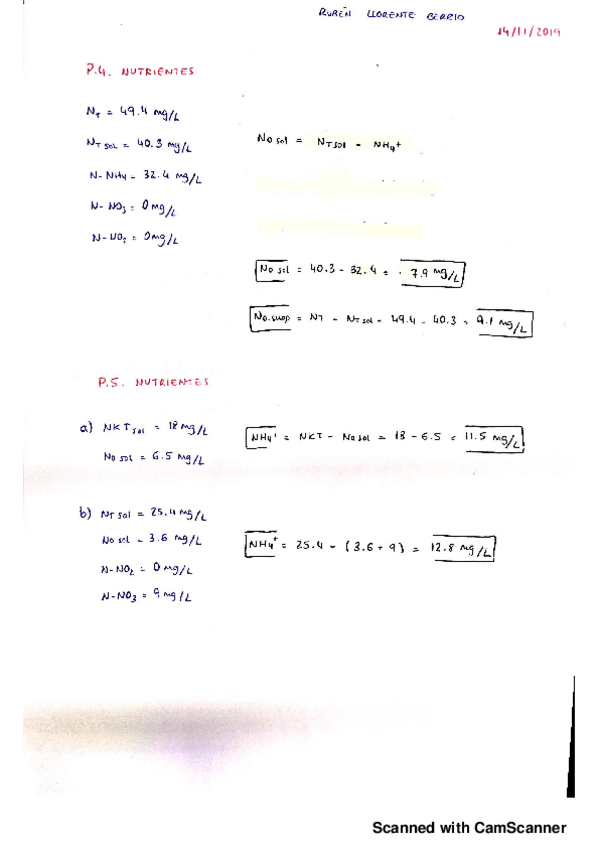 RUBÉN LLORENTE BERRIO
14/11/2019
P.4. NUTRIENTES
NT = 49.4 mg/L
NT sol = 40.3 mg/L
No sol = NT sol - NH4+
N-NH4 - 32.4 mg/L
N-NO3 = 0 mg/L
N-NO2 = 0 mg/L
No sol = 40.3 - 32.4 = 7.9 mg/L
No.susp = NT - NT sol = 49.4 - 40.3 = 9.1 mg/L
P.5. NUTRIENTES
a) NKT sol = 18 mg/L
NH4+ = NKT - No sol = 18 - 6.5 = 11.5 mg/L
No sol = 6.5 mg/L
b) NT sol = 25.4 mg/L
No sol = 3.6 mg/L
NH4+ = 25.4 - (3.6 + 9) = 12.8 mg/L
N-NO2 = 0 mg/L
N-NO3 = 9 mg/L
Scanned with CamScanner